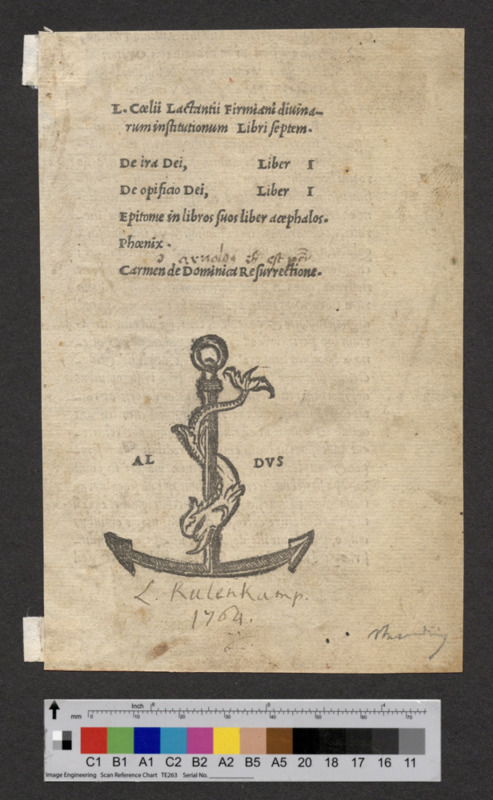 L. Cœlii Lactantii Firmiani diuina-
rum institutionum Libri septem.
De ira Dei, Liber I
De opificio Dei, Liber I
Epitome in libros suos liber acephalos.
Phœnix.
est
Carmen de Dominica Resurrectione.
AL DVS
L. Kulenkamp.
1764.
mm Inch
C1 B1 A1 C2 B2 A2 B5 A5 20 18 17 16 11
Image Engineering Scan Reference Chart TE263 Serial No.